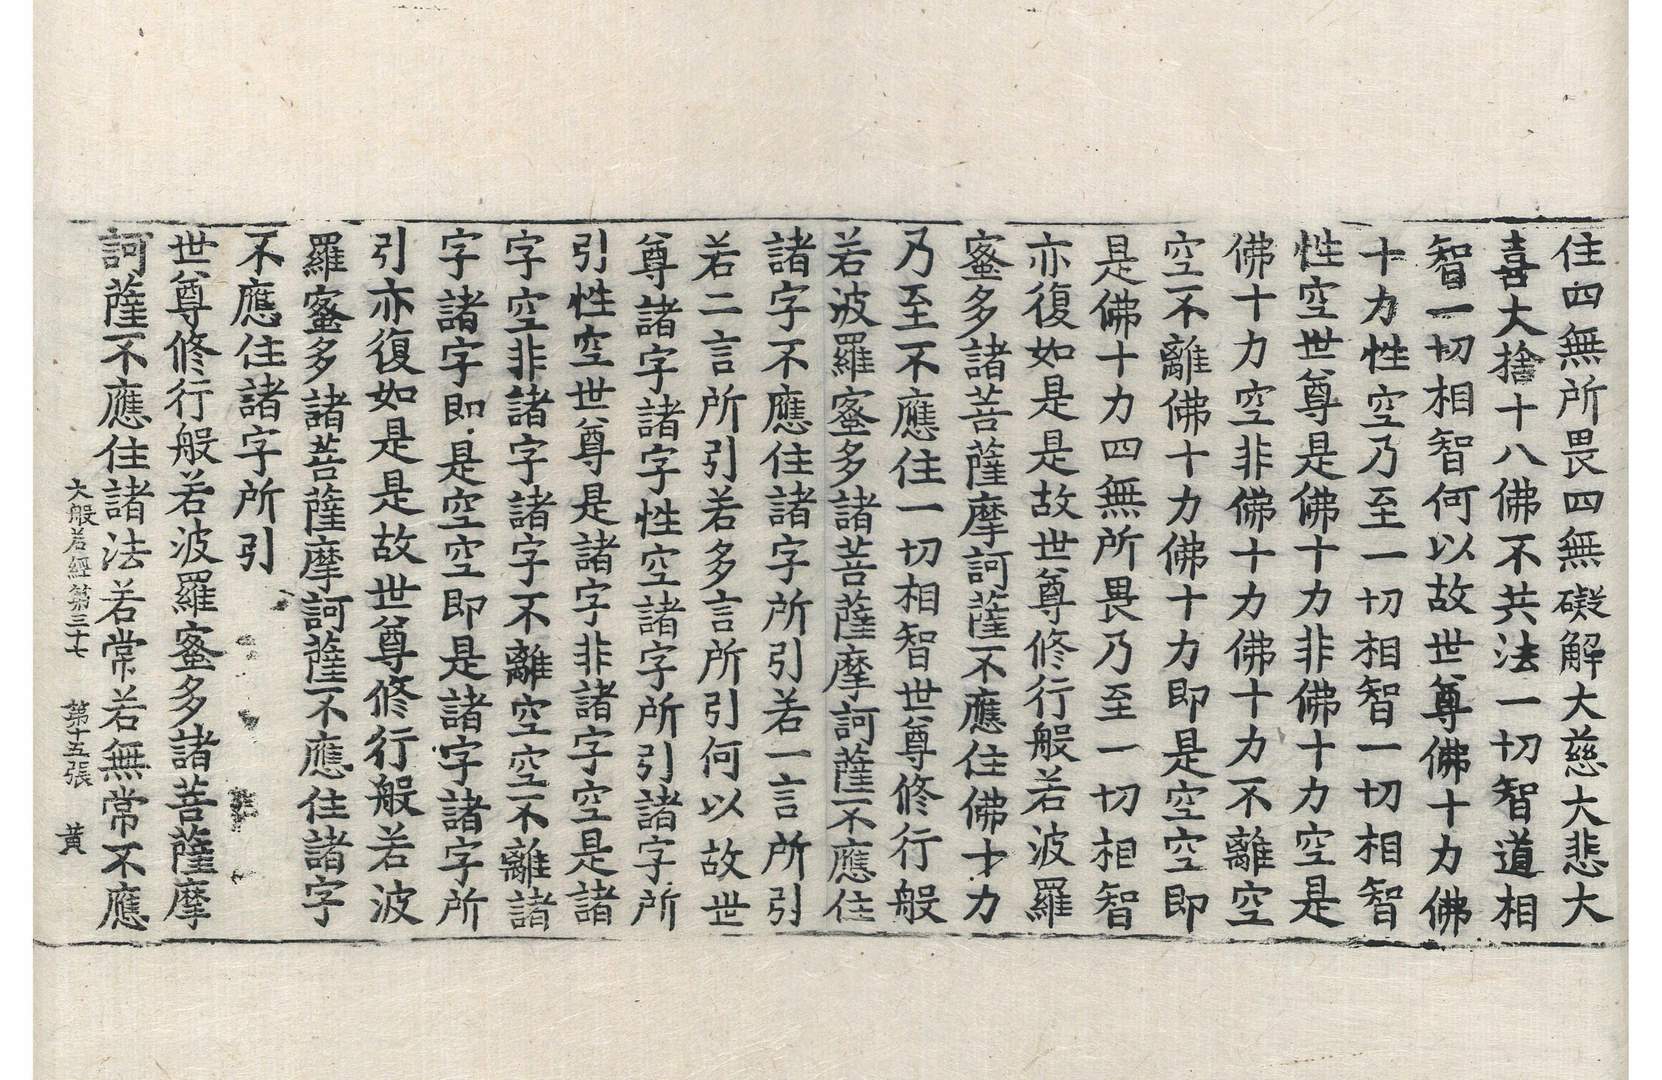 住四無所畏四無礙解大慈大悲大
喜大捨十八佛不共法一切智道相
智一切相智何以故世尊佛十力佛
十力性空乃至一切相智一切相智
性空世尊是佛十力非佛十力空是
佛十力空非佛十力佛十力不離空
空不離佛十力佛十力即是空空即
是佛十力四無所畏乃至一切相智
亦復如是是故世尊修行般若波羅
蜜多諸菩薩摩訶薩不應住佛十力
乃至不應住一切相智世尊修行般
若波羅蜜多諸菩薩摩訶薩不應住
諸字不應住諸字所引若一言所引
若二言所引若多言所引何以故世
尊諸字諸字性空諸字所引諸字所
引性空世尊是諸字非諸字空是諸
字空非諸字諸字不離空空不離諸
字諸字即是空空即是諸字諸字所
引亦復如是是故世尊修行般若波
羅蜜多諸菩薩摩訶薩不應住諸字
不應住諸字所引
世尊修行般若波羅蜜多諸菩薩摩
訶薩不應住諸法若常若無常不應
大般若經第三十七 第十五張 黃